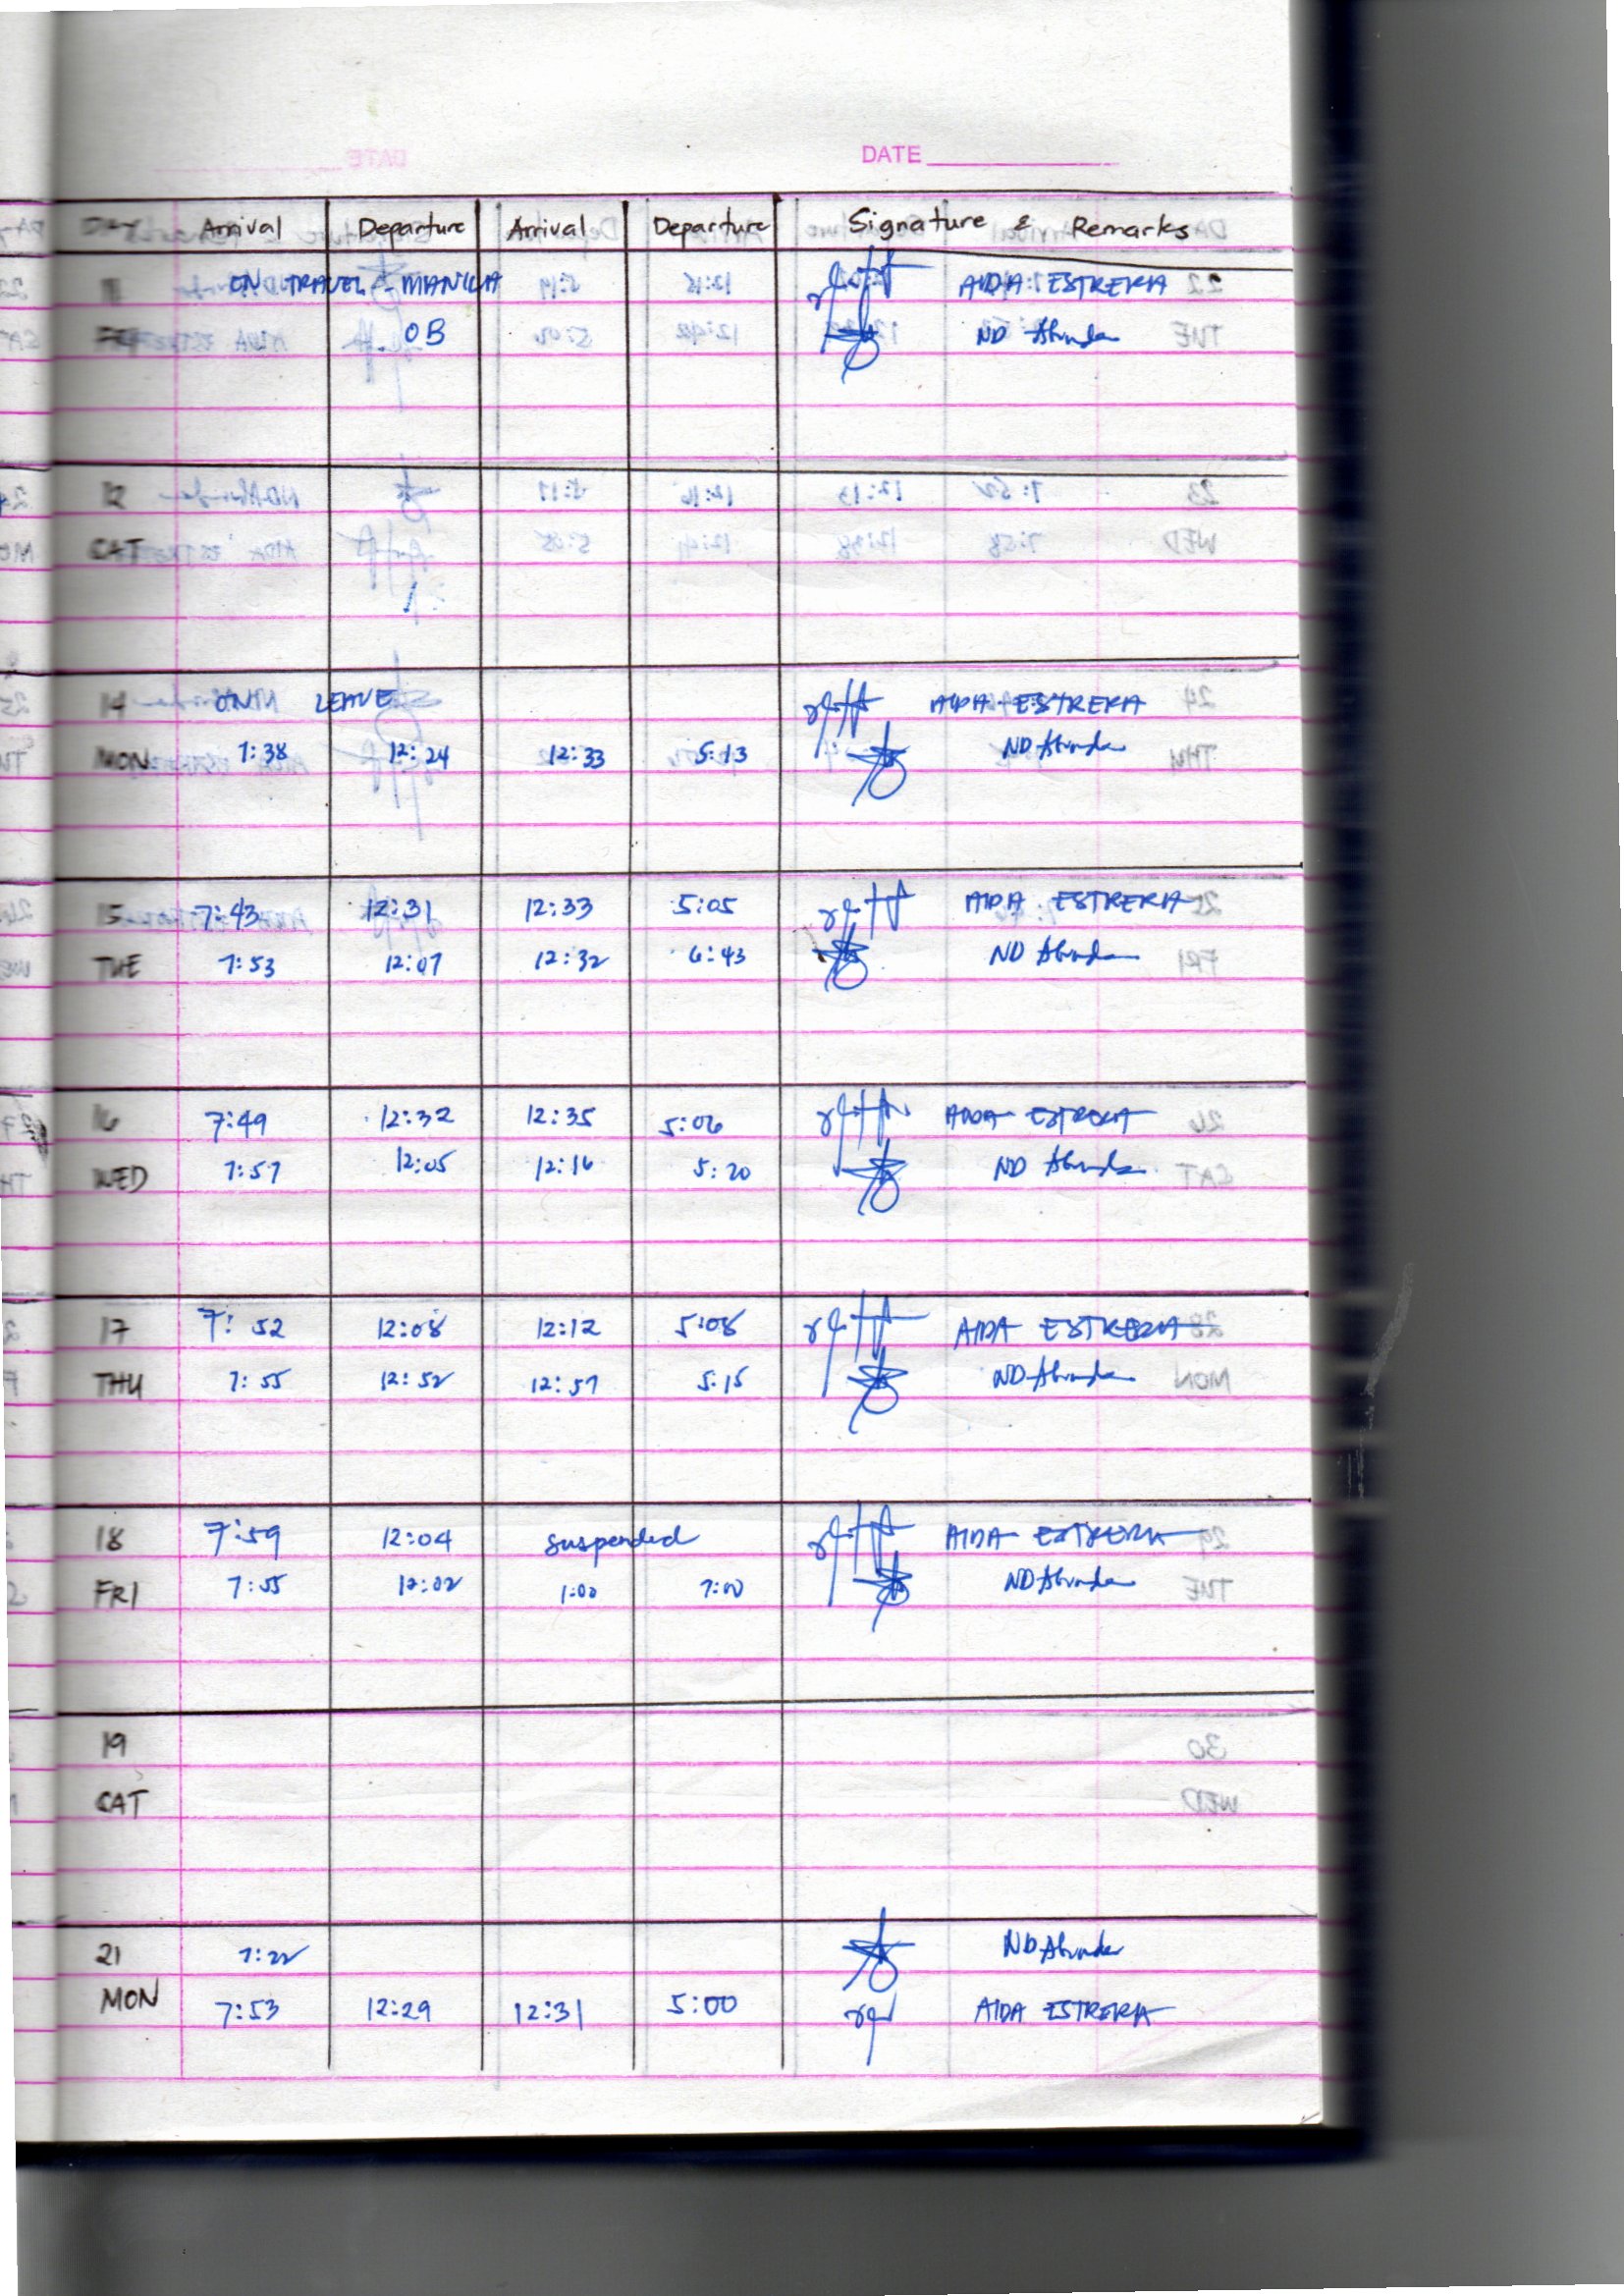 DATE
DAY Arrival Departure Arrival Departure Signature & Remarks
11 ON TRAVEL - MANILA AIDA ESTRERA
FRI OB ND
12
SAT
14 ON LEAVE AIDA ESTRERA
MON 7:38 12:24 12:33 5:13 ND
15 7:43 12:31 12:33 5:05 AIDA ESTRERA
TUE 7:53 12:07 12:32 6:43 ND
16 7:49 12:32 12:35 5:06 AIDA ESTRERA
WED 7:57 12:05 12:16 5:20 ND
17 7:52 12:08 12:12 5:08 AIDA ESTRERA
THU 7:55 12:52 12:57 5:15 ND
18 7:59 12:04 suspended AIDA ESTRERA
FRI 7:55 12:02 1:00 7:00 ND
19
SAT
21 7:22 ND
MON 7:53 12:29 12:31 5:00 AIDA ESTRERA